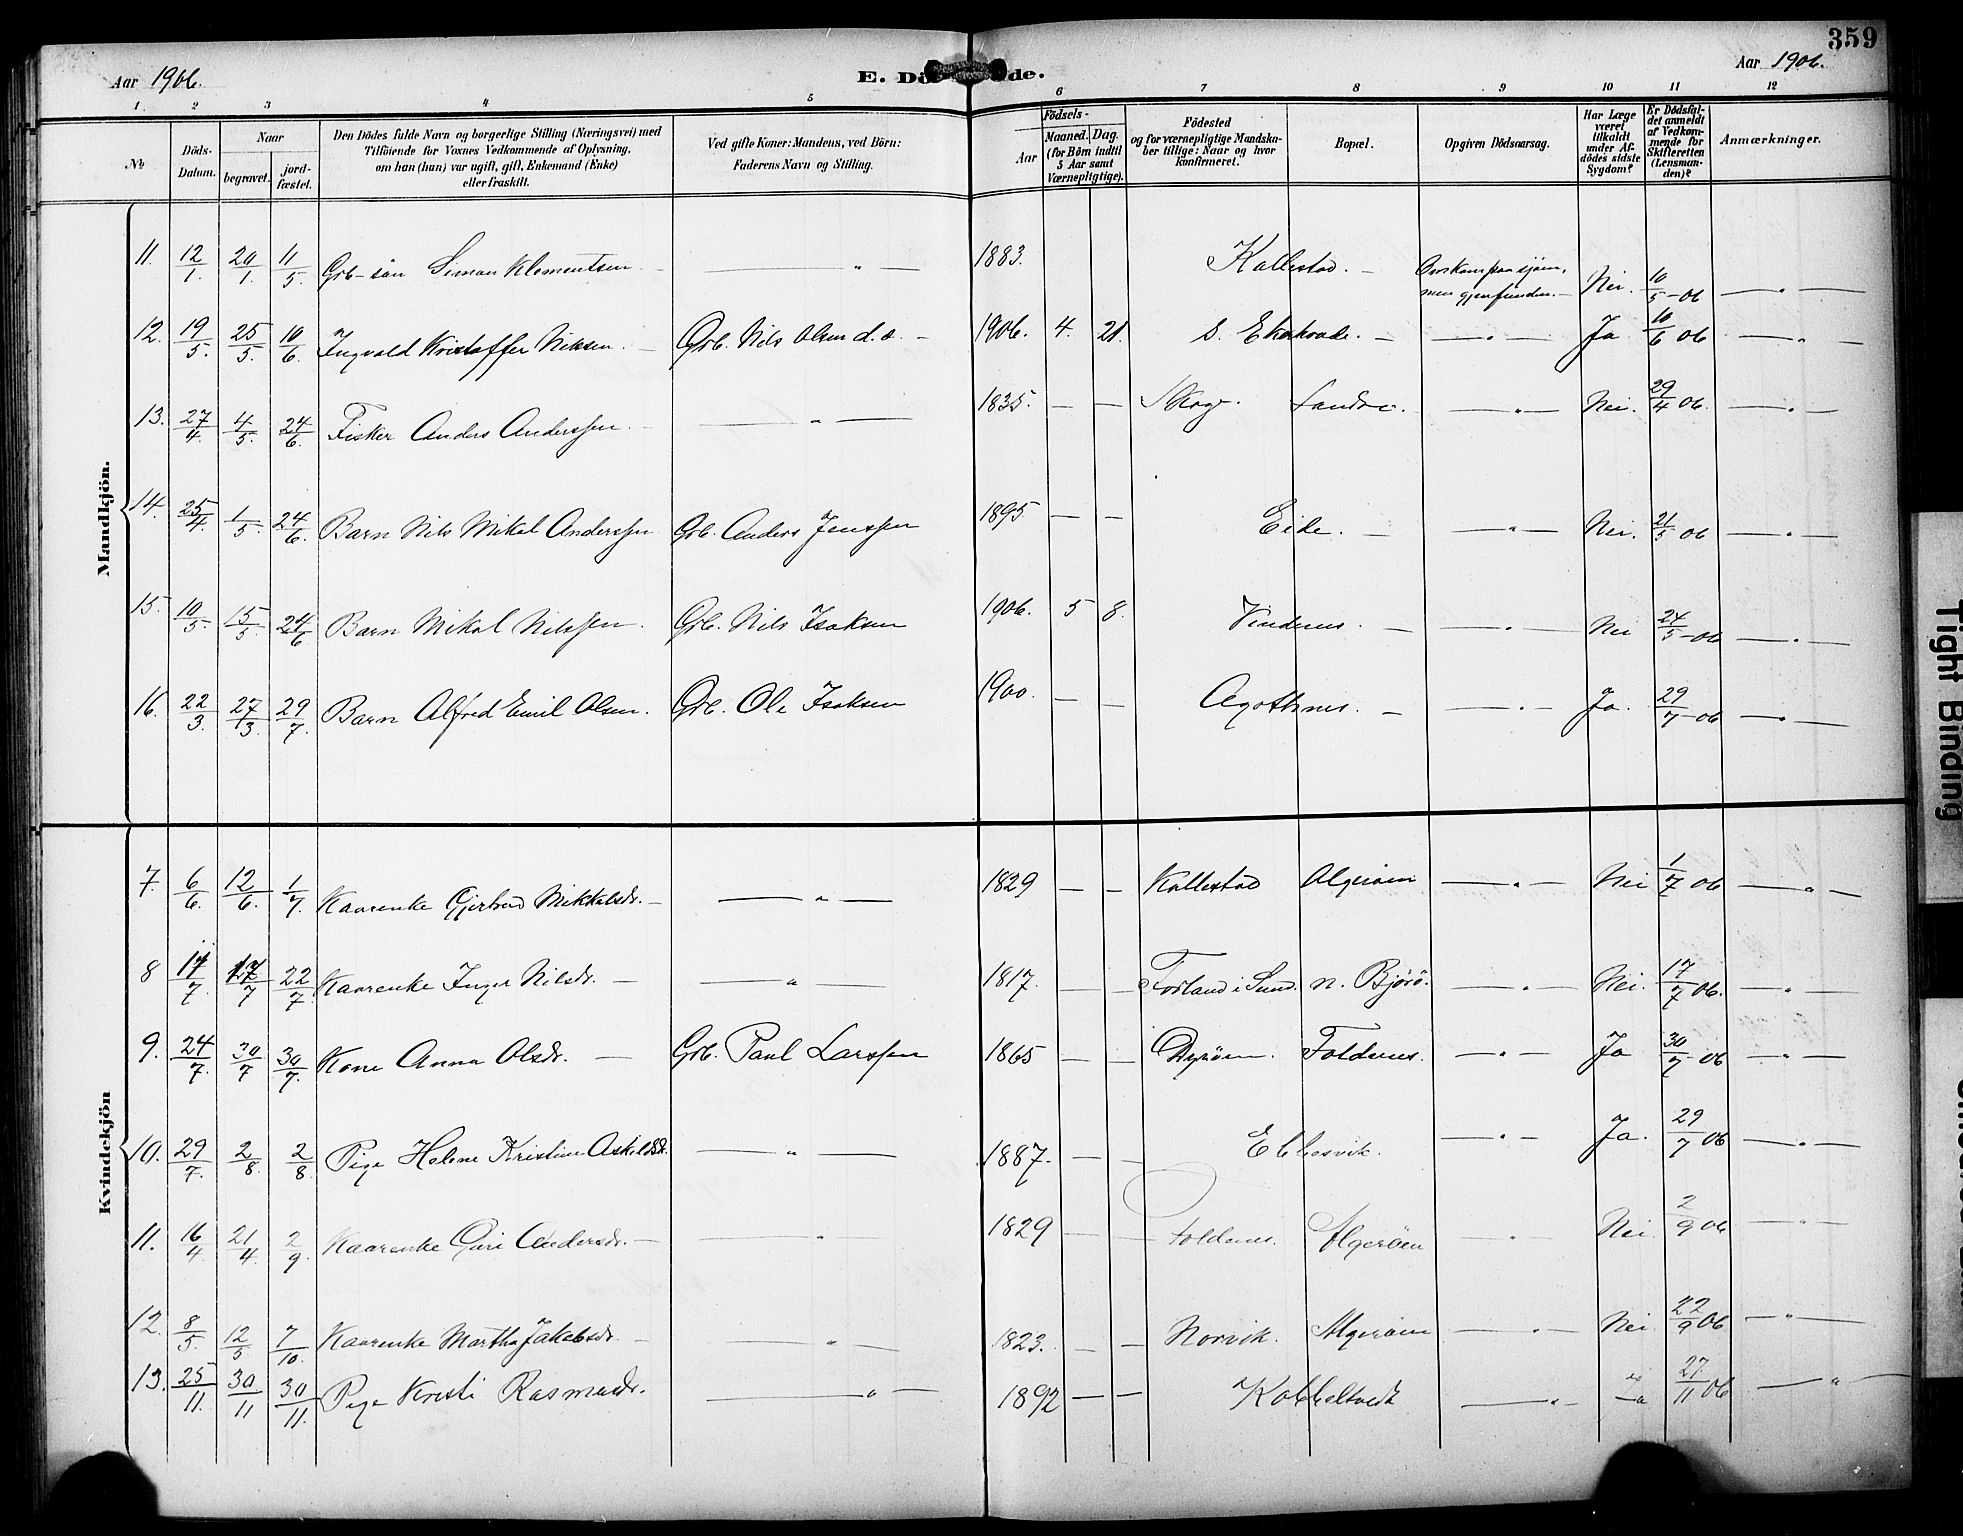 359
Aar 1906.
E. Dö de.
Aar 1906.
1. 2 3 4 5 6 7 8 9 10 11 12
№
Döds-Datum.
Naar
begravet.
jord-fæstet.
Den Dödes fulde Navn og borgerlige Stilling (Næringsvei) med
Tilföiende for Voxnes Vedkommende af Oplysning,
om han (hun) var ugift, gift, Enkemand (Enke)
eller fraskilt.
Ved gifte Koner: Mandens, ved Börn:
Faderens Navn og Stilling.
Födsels-
Aar
Maaned. Dag.
(for Börn indtil
5 Aar samt
Værnepligtige).
Födested
og for værnepligtige Mandska-
ber tillige: Naar og hvor
konfirmeret.
Bopæl.
Opgiven Dödsaarsag.
Har Læge
været
tilkaldt
under Af-
dödes sidste
Sygdom?
Er Dödsfal-
det anmeldt
af Vedkom-
mende for
Skifteretten
(Lensman-
den)?
Anmærkninger.
Mandkjön.
11. 12/1. 20/1. 11/5 Grb-sön Simon Klementsen — " — 1883. Kallestad. — Omkom paa sjøen, men gjenfunden. — Nei. 10/5-06 — " —
12. 19/5. 25/5. 10/6 Ingvald Kristoffer Nilsen. — Grb. Nils Olsen d.æ. — 1906. 4. 21. S. Ekerhovde. — — " — Ja. 10/6 06 — " —
13. 27/4. 4/5. 24/6. Fisker Anders Anderssen. — — " — 1835. — — Skoge. Landro. — " — Nei. 29/4 06. — " —
14. 25/4 1/5. 24/6. Barn Nils Mikal Anderssen Grb. Anders Jenssen 1895 — — Eide. — — " — Nei. 21/5 06 — " —
15. 10/5. 15/5. 24/6 Barn Mikal Nilssen. Grb. Nils Isaksen 1906. 5 8. Vindenes. — — " — Nei 24/5-06 — " —
16. 22/3. 27/3. 29/7 Barn Alfred Emil Olsen. Grb. Ole Isaksen 1900. — — Agothnes. — — " — Ja. 29/7-06 — " —
Kvindekjön
7. 6/6. 12/6. 1/7. Kaarenke Gjertrud Mikkelsdr. — — " — 1829 — — Kallestad Algerøen — " — Nei 1/7 06 — " —
8 11/7. 17/7 22/7 Kaarenke Inger Nilsdr. — — " — 1817. — — Forland i Sund. n. Bjørø. — " — Nei. 17/7 06. — " —
9. 24/7. 30/7 30/7. Kone Anna Olsdr. — Grb. Paul Larssen 1865 — — Dyrøen. Foldenes. — " — Ja 30/7-06 — " —
10. 29/7. 2/8. 2/8. Pige Helene Kristine Askildsdr. — " — 1887. — — Ebbesvik. — " — Ja. 29/7 06 — " —
11. 16/4 21/4. 2/9. Kaarenke Guri Andersdr. — — " — 1829 — — Foldenes. Algerøen — " — Nei. 2/9 06 — " —
12. 8/5. 12/5 7/10. Kaarenke Martha Jakobsdr. — — " — 1823. — — Norvik. Algerøen — " — Nei. 22/9 06 — " —
13. 25/11. 30/11 30/11. Pige Kristi Rasmusdr. — " — 1892 — — Kobbeltvedt — " — Ja 27/11 06 — " —
Tight Binding